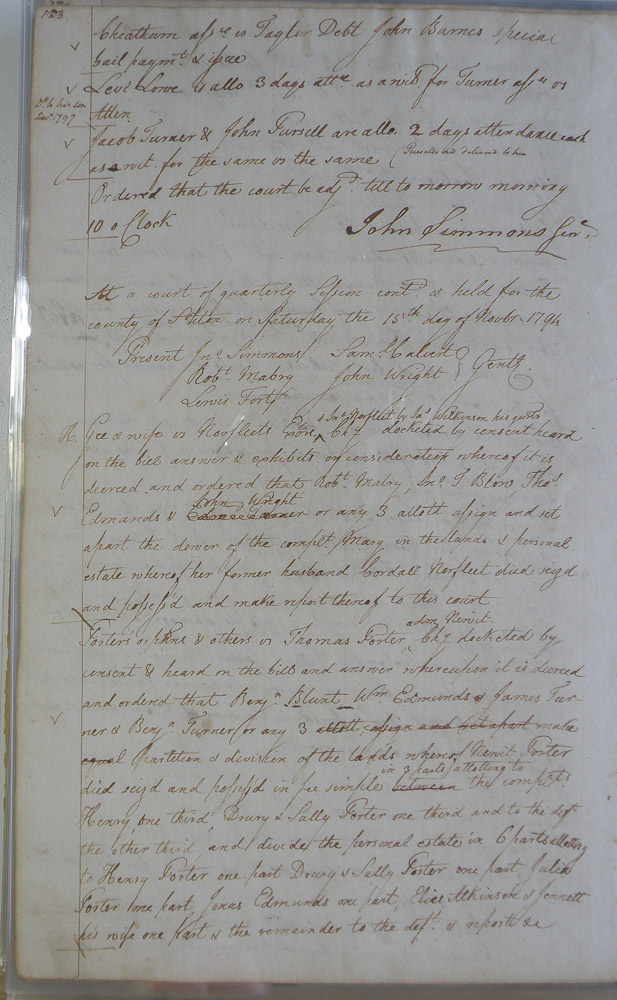 123.
Cheatham asse vs Taylor Debt John Barnes special
bail paymt & issue
Levi Lowe is allo 3 days atte as a wit. for Turner asse vs
Atkin
Dd. to his son
Decr 1797
Jacob Turner & John Pursell are allo. 2 days attendance each
as a wit. for the same vs the same (Pursells tkt delivered to him
Ordered that the court be adjd. till to morrow morning
10 o Clock
John Simmons Genr
At a court of quarterly Session contd. & held for the
county of S°hton on Saturday the 15th day of Novbr 1794
Present Jno. Simmons Saml. Calvert
Robt. Mabry John Wright } Gent.
Lewis Fort
& Jno. Norfleet by Jas. Wilkinson his guardn
H. Gee & wife vs Norfleets Exors ^ Chy docketed by consent heard
on the bill answer & exhibits on consideration whereof it is
decreed and ordered that Robt. Mabry, Jno. T. Blow, Thos.
John Wright
Edmunds & or any 3 allott assign and set
apart the dower of the complt Mary in the lands & personal
estate whereof her former husband Cordall Norfleet died seiz'd
and possess'd and make report thereof to this court
adm. Newit
Forters orphns & others vs Thomas Forter ^ Chy docketed by
consent & heard on the bill and answer whereupon it is decreed
and ordered that Benjn. Blunt Wm Edmunds James Tur-
ner & Benjn. Turner or any 3 allott, assign and set apart make
equal partition & division of the lands whereof Newit Forter
in 3 parts allotting to
died seiz'd and possess'd in fee simple between the complts.
Henry, one third, Drury & Sally Forter one third and to the deft.
the other third and divide the personal estate in 6 parts allotting
to Henry Forter one part Drury & Sally Forter one part, Julia
Forter one part, Jonas Edmunds one part, Elias Atkinson & Jennett
his wife one part & the remainder to the deft. & report &c